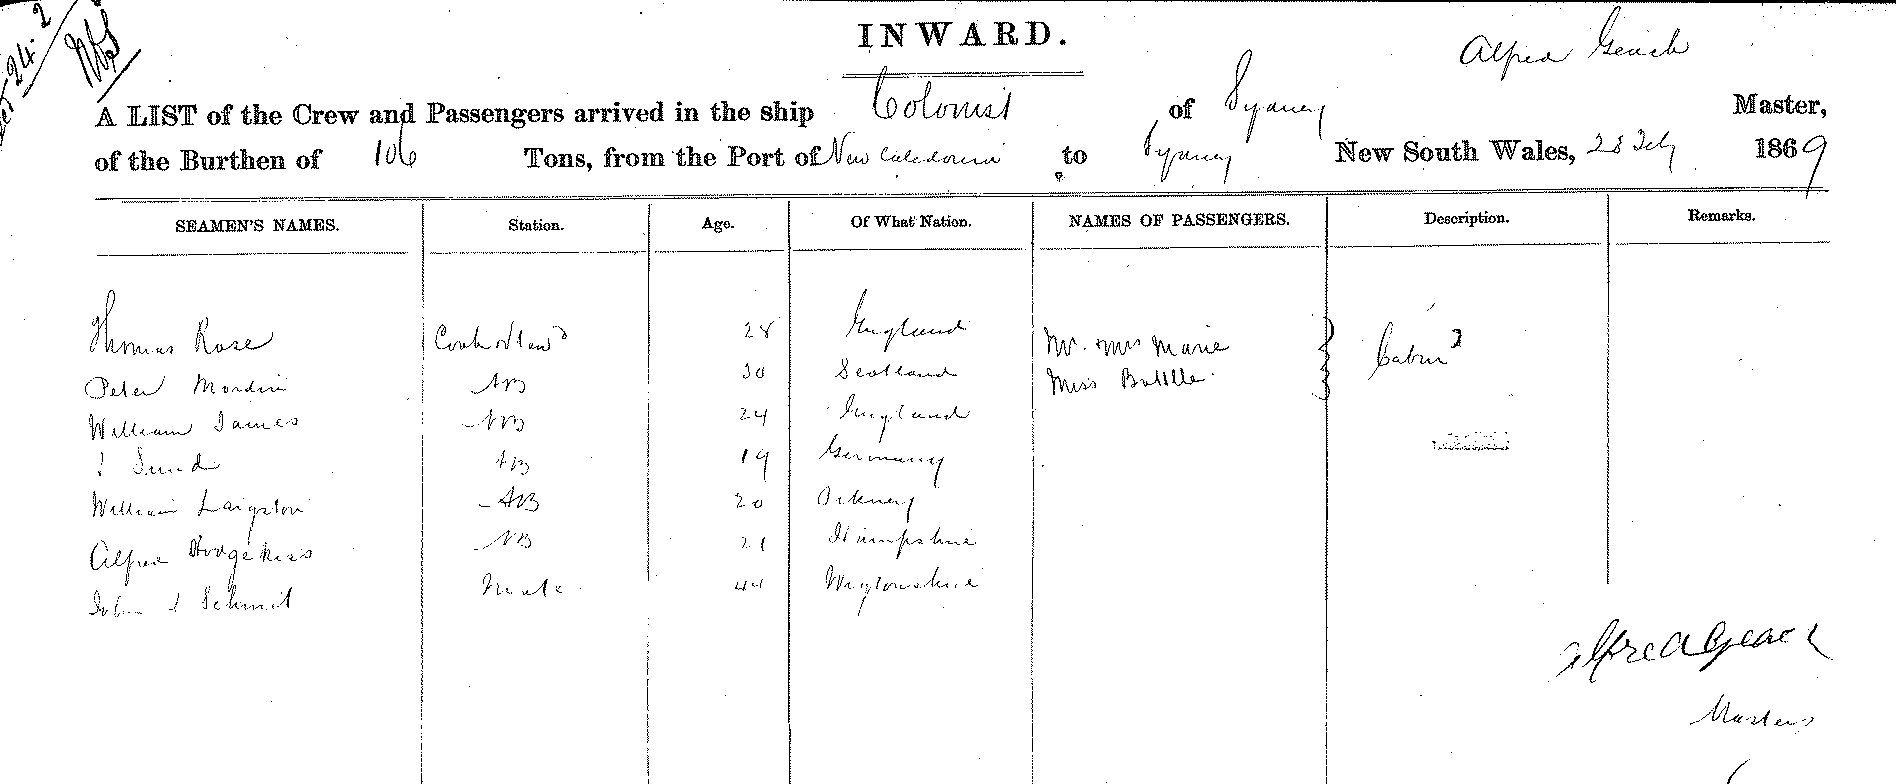 24.2
INWARD.
Alfred Geach
A LIST of the Crew and Passengers arrived in the ship Colonist of Sydney Master,
of the Burthen of 106 Tons, from the Port of New Caledonia to Sydney New South Wales, 28 Feby 1869
SEAMEN'S NAMES. Station. Age. Of What Nation. NAMES OF PASSENGERS. Description. Remarks.
Thomas Rose Cook & Stewd 28 England Mr. & Mrs Marie Cabin
Peter AB 30 Scotland Miss
William James AB 24 England
Sund AB 19 Germany
William Langston AB 20 Orkney
Alfred Hodgekiss AB 21 Hampshire
John Schmit Mate 44 Wigtonshire
Alfred Geach
Master